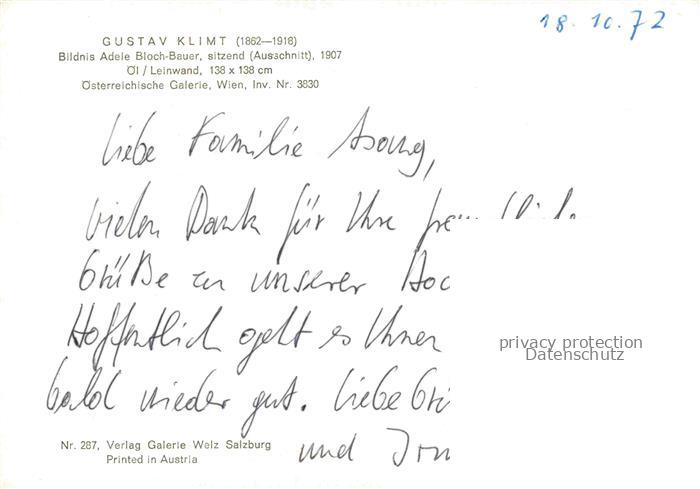 18.10.72
GUSTAV KLIMT (1862—1918)
Bildnis Adele Bloch-Bauer, sitzend (Ausschnitt), 1907
Öl / Leinwand, 138 x 138 cm
Österreichische Galerie, Wien, Inv. Nr. 3830
Liebe Familie
vielen Dank für Ihre
Grüße zu unserer
Hoffentlich geht es Ihnen
privacy protection
Datenschutz
bald wieder gut. Liebe
Nr. 287, Verlag Galerie Welz Salzburg
Printed in Austria
und